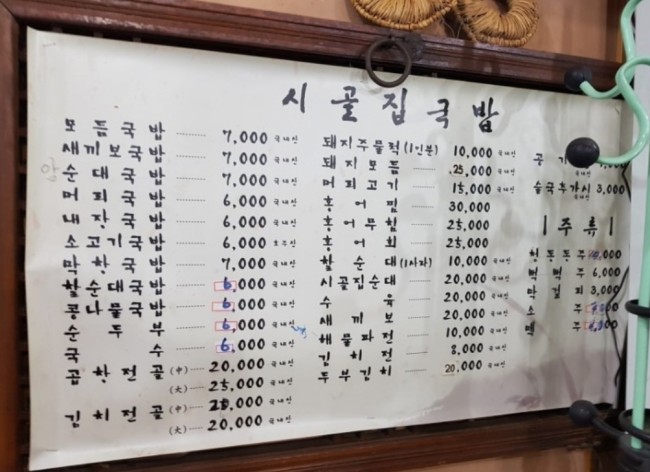 시골집국밥
모듬국밥 ········ 7,000 국내산
새끼보국밥 ········ 7,000 국내산
순대국밥 ········ 7,000 국내산
머리국밥 ········ 6,000 국내산
내장국밥 ········ 6,000 국내산
소고기국밥 ········ 6,000
막창국밥 ········ 7,000 국내산
암순대국밥 ········ 6,000 국내산
콩나물국밥 ········ 6,000 국내산
순두부 ········ 6,000 국내산
국수 ········ 6,000 국내산
곱창전골 (中) ···· 20,000 국내산
(大) ···· 25,000 국내산
김치전골 (中) ···· 국내산
(大) ···· 20,000 국내산
돼지주물럭 (1인분) 10,000 국내산
돼지모듬 — 25,000 국내산
머리고기 — 15,000 국내산
홍어찜 — 30,000
홍어무침 — 25,000
홍어회 — 25,000
암순대 (1사라) 10,000 국내산
시골집순대 — 20,000 국내산
수육 — 20,000 국내산
새끼보 — 20,000 국내산
해물파전 — 10,000 국내산
김치전 — 8,000 국내산
두부김치 — 20,000 국내산
공기
국내산
술국추가시 3,000
국내산
|주류|
동동주
6,000
막걸리 3,000
소주
맥주